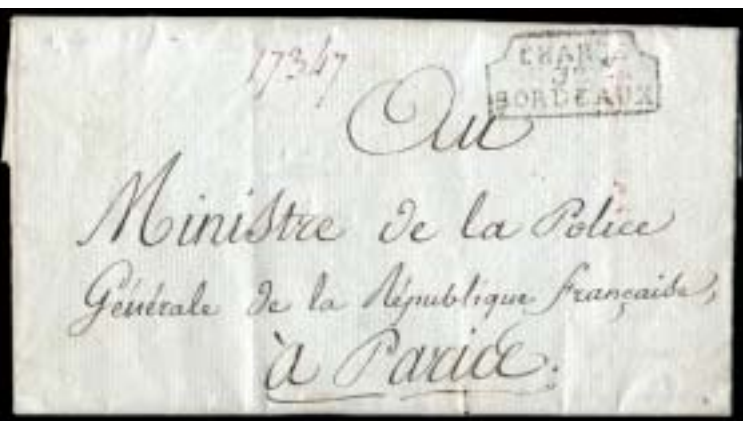 17347
CHARGÉ
BORDEAUX
Au
Ministre de la Police
Générale de la République française,
à Paris.